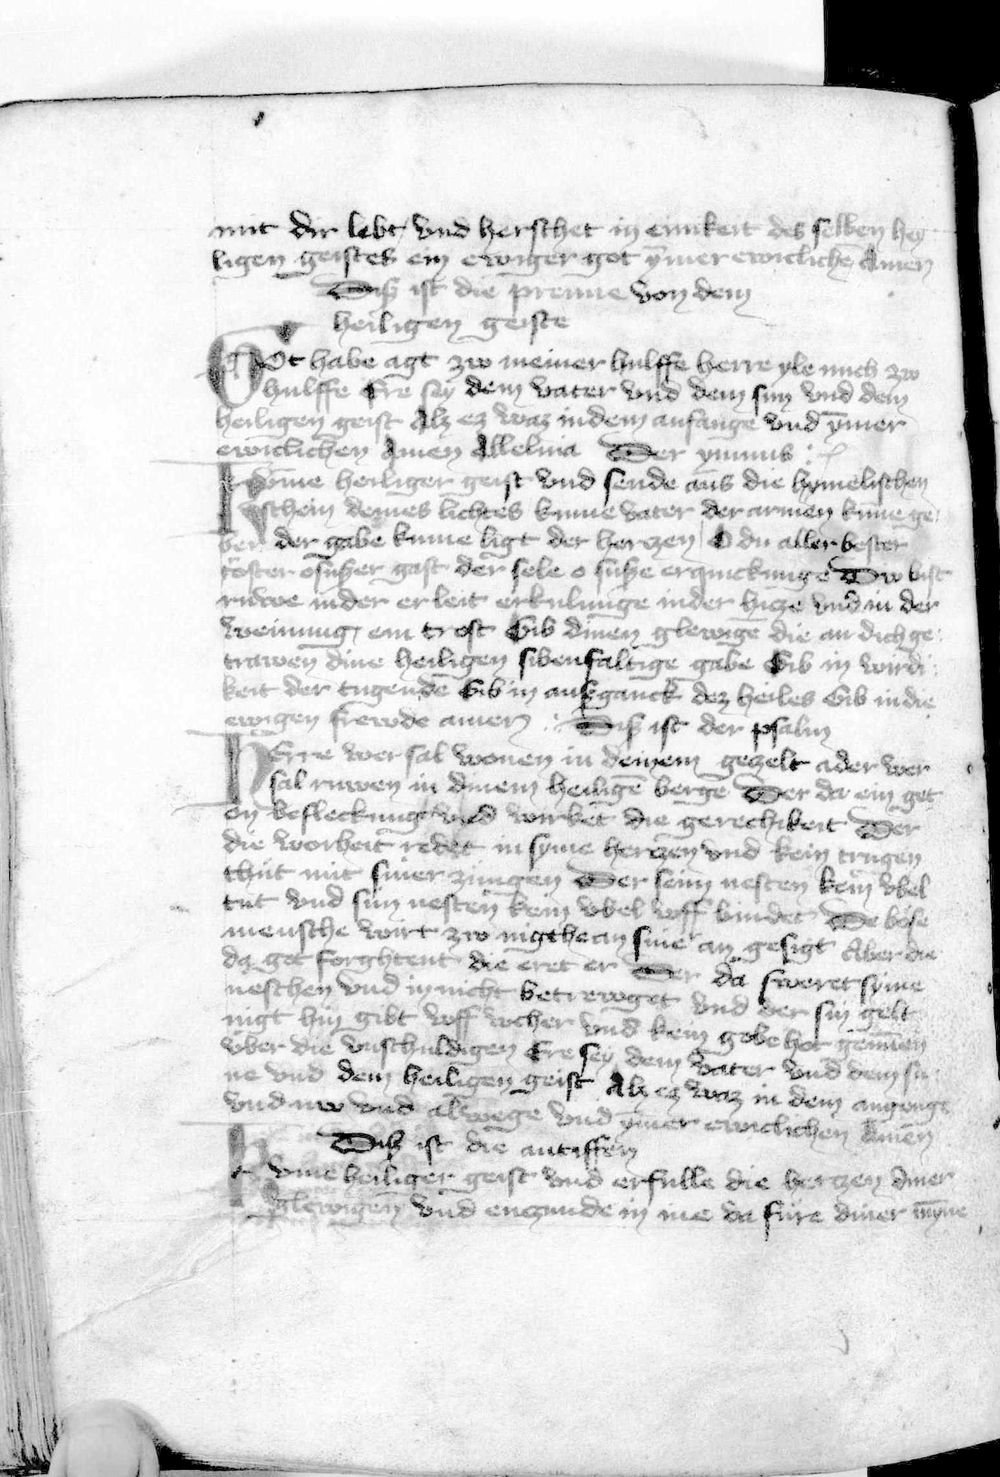 mit dir lebt vnd herschet in einikeit des selben hey
ligen geistes ein ewiger got ȳmer ewiclichē Amen
Diß ist die preme von dem
heiligen geiste
GOt habe agt zw meiner hulffe herre yle mich zw
hulffe Ere sey dem vater vnd dem sun vnd dem
heiligen geist Alz ez waz in dem anfange vnd ȳmer
ewiclichen Amen Allelma Der ymnus
Kome heiliger geist vnd sende auß die hymelischen
schein deines lichtes kume vater der armen kume ge
ber der gabe kume ligt der herczen O du aller bester
troster o sußer gast der sele o suße erquickunge Dw bist
ruwe in der erbeit erkulunge in der hicze vnd in der
weinung ein trost Gib dinen glewigē die an dich ge
trawen dine heiligen sibenfaltige gabe Gib in wirdi
keit der tugende Gib in außganck dez heiles Gib in die
ewigen frewde amen Diß ist der psalm
HErre wer sal wonen in deinem geczelt ader wer
sal ruwen in dinem heiligē berge Der da ein get
on befleckung vnd wirbet die gerechikeit Der
die worheit redet in syme herczen vnd kein trugen
thut mit siner zungen Der seim nesten kein vbel
tut vnd sim nesten kein vbel vff bindet De bose
mensche wirt zw nigthe an sine an gesigt Aber die
da got forghtent die eret er Der da sweret syme
neschen vnd in nicht betrewget vnd der sin gelt
nigt hin gibt vff wcher vnd kein gobe hot genūen
vber die vnschuldigen Ere sey dem vater vnd dem su
ne vnd dem heiligen geist Alz ez waz in dem angange
vnd nw vnd alwege vnd ȳmer ewiclichen Amen
Diß ist die antiffen
Kume heiliger geist vnd erfulle die herczen diner
glewigen vnd enczunde in ine da füre diner myne